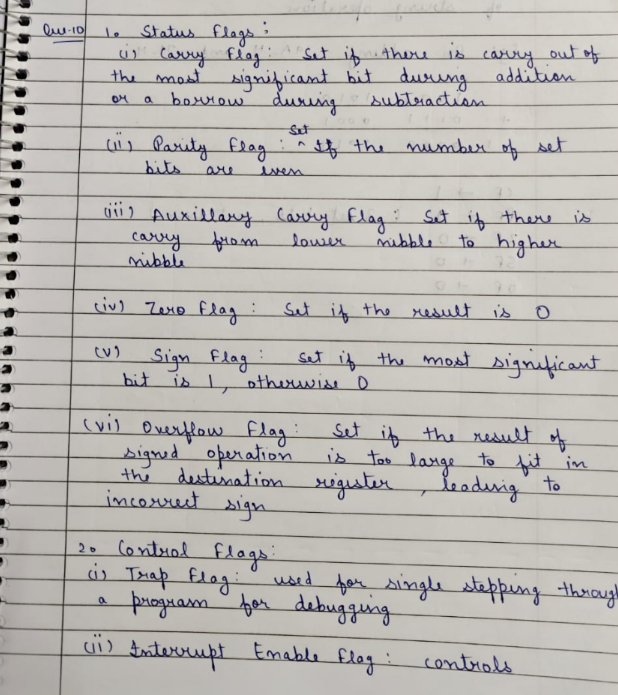 Que-10 1. Status Flags:
(i) Carry Flag: Set if there is carry out of
the most significant bit during addition
or a borrow during subtraction
(ii) Parity Flag: Set If the number of set
bits are even
(iii) Auxillary Carry Flag: Set if there is
carry from lower nibble to higher
nibble
(iv) Zero Flag: Set if the result is 0
(v) Sign Flag: Set if the most significant
bit is 1, otherwise 0
(vi) Overflow Flag: Set if the result of
signed operation is too large to fit in
the destination register, leading to
incorrect sign
2. Control Flags:
(i) Trap Flag: used for single stepping through
a program for debugging
(ii) Interrupt Enable Flag: controls